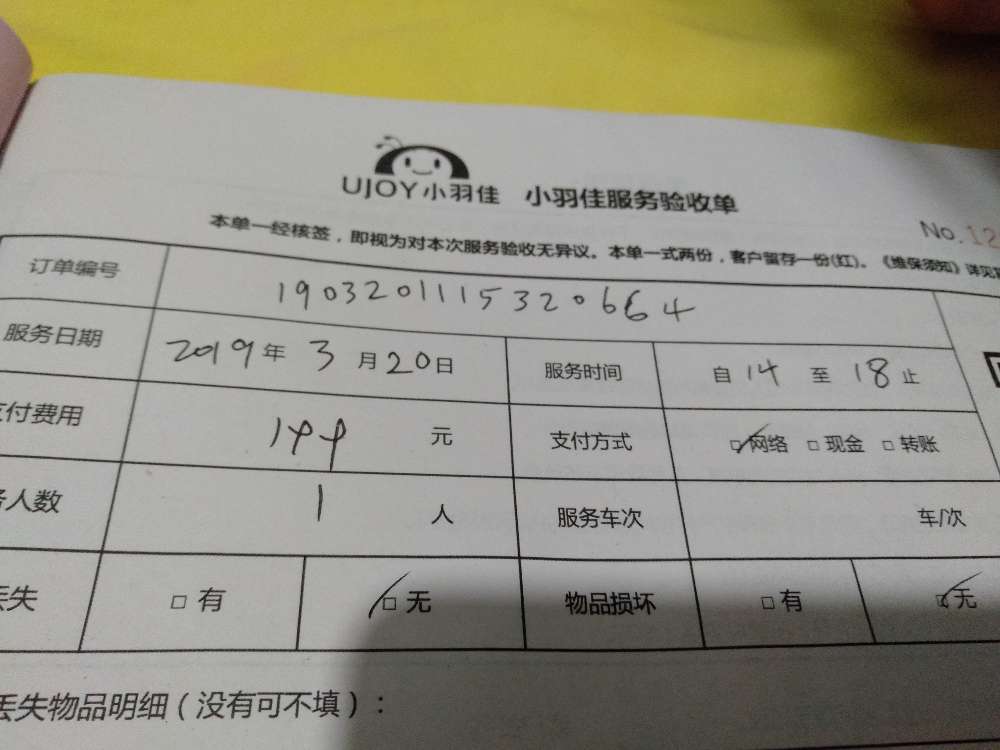 UJOY小羽佳 小羽佳服务验收单
No.12
本单一经核签，即视为对本次服务验收无异议。本单一式两份，客户留存一份(红)。《维保须知》详见
订单编号 190320111532０664
服务日期 2019年3月20日 服务时间 自14至18止
付费用 144元 支付方式 网络 现金 转账
人数 1人 服务车次 车/次
丢失 有 无 物品损坏 有 无
丢失物品明细（没有可不填）：